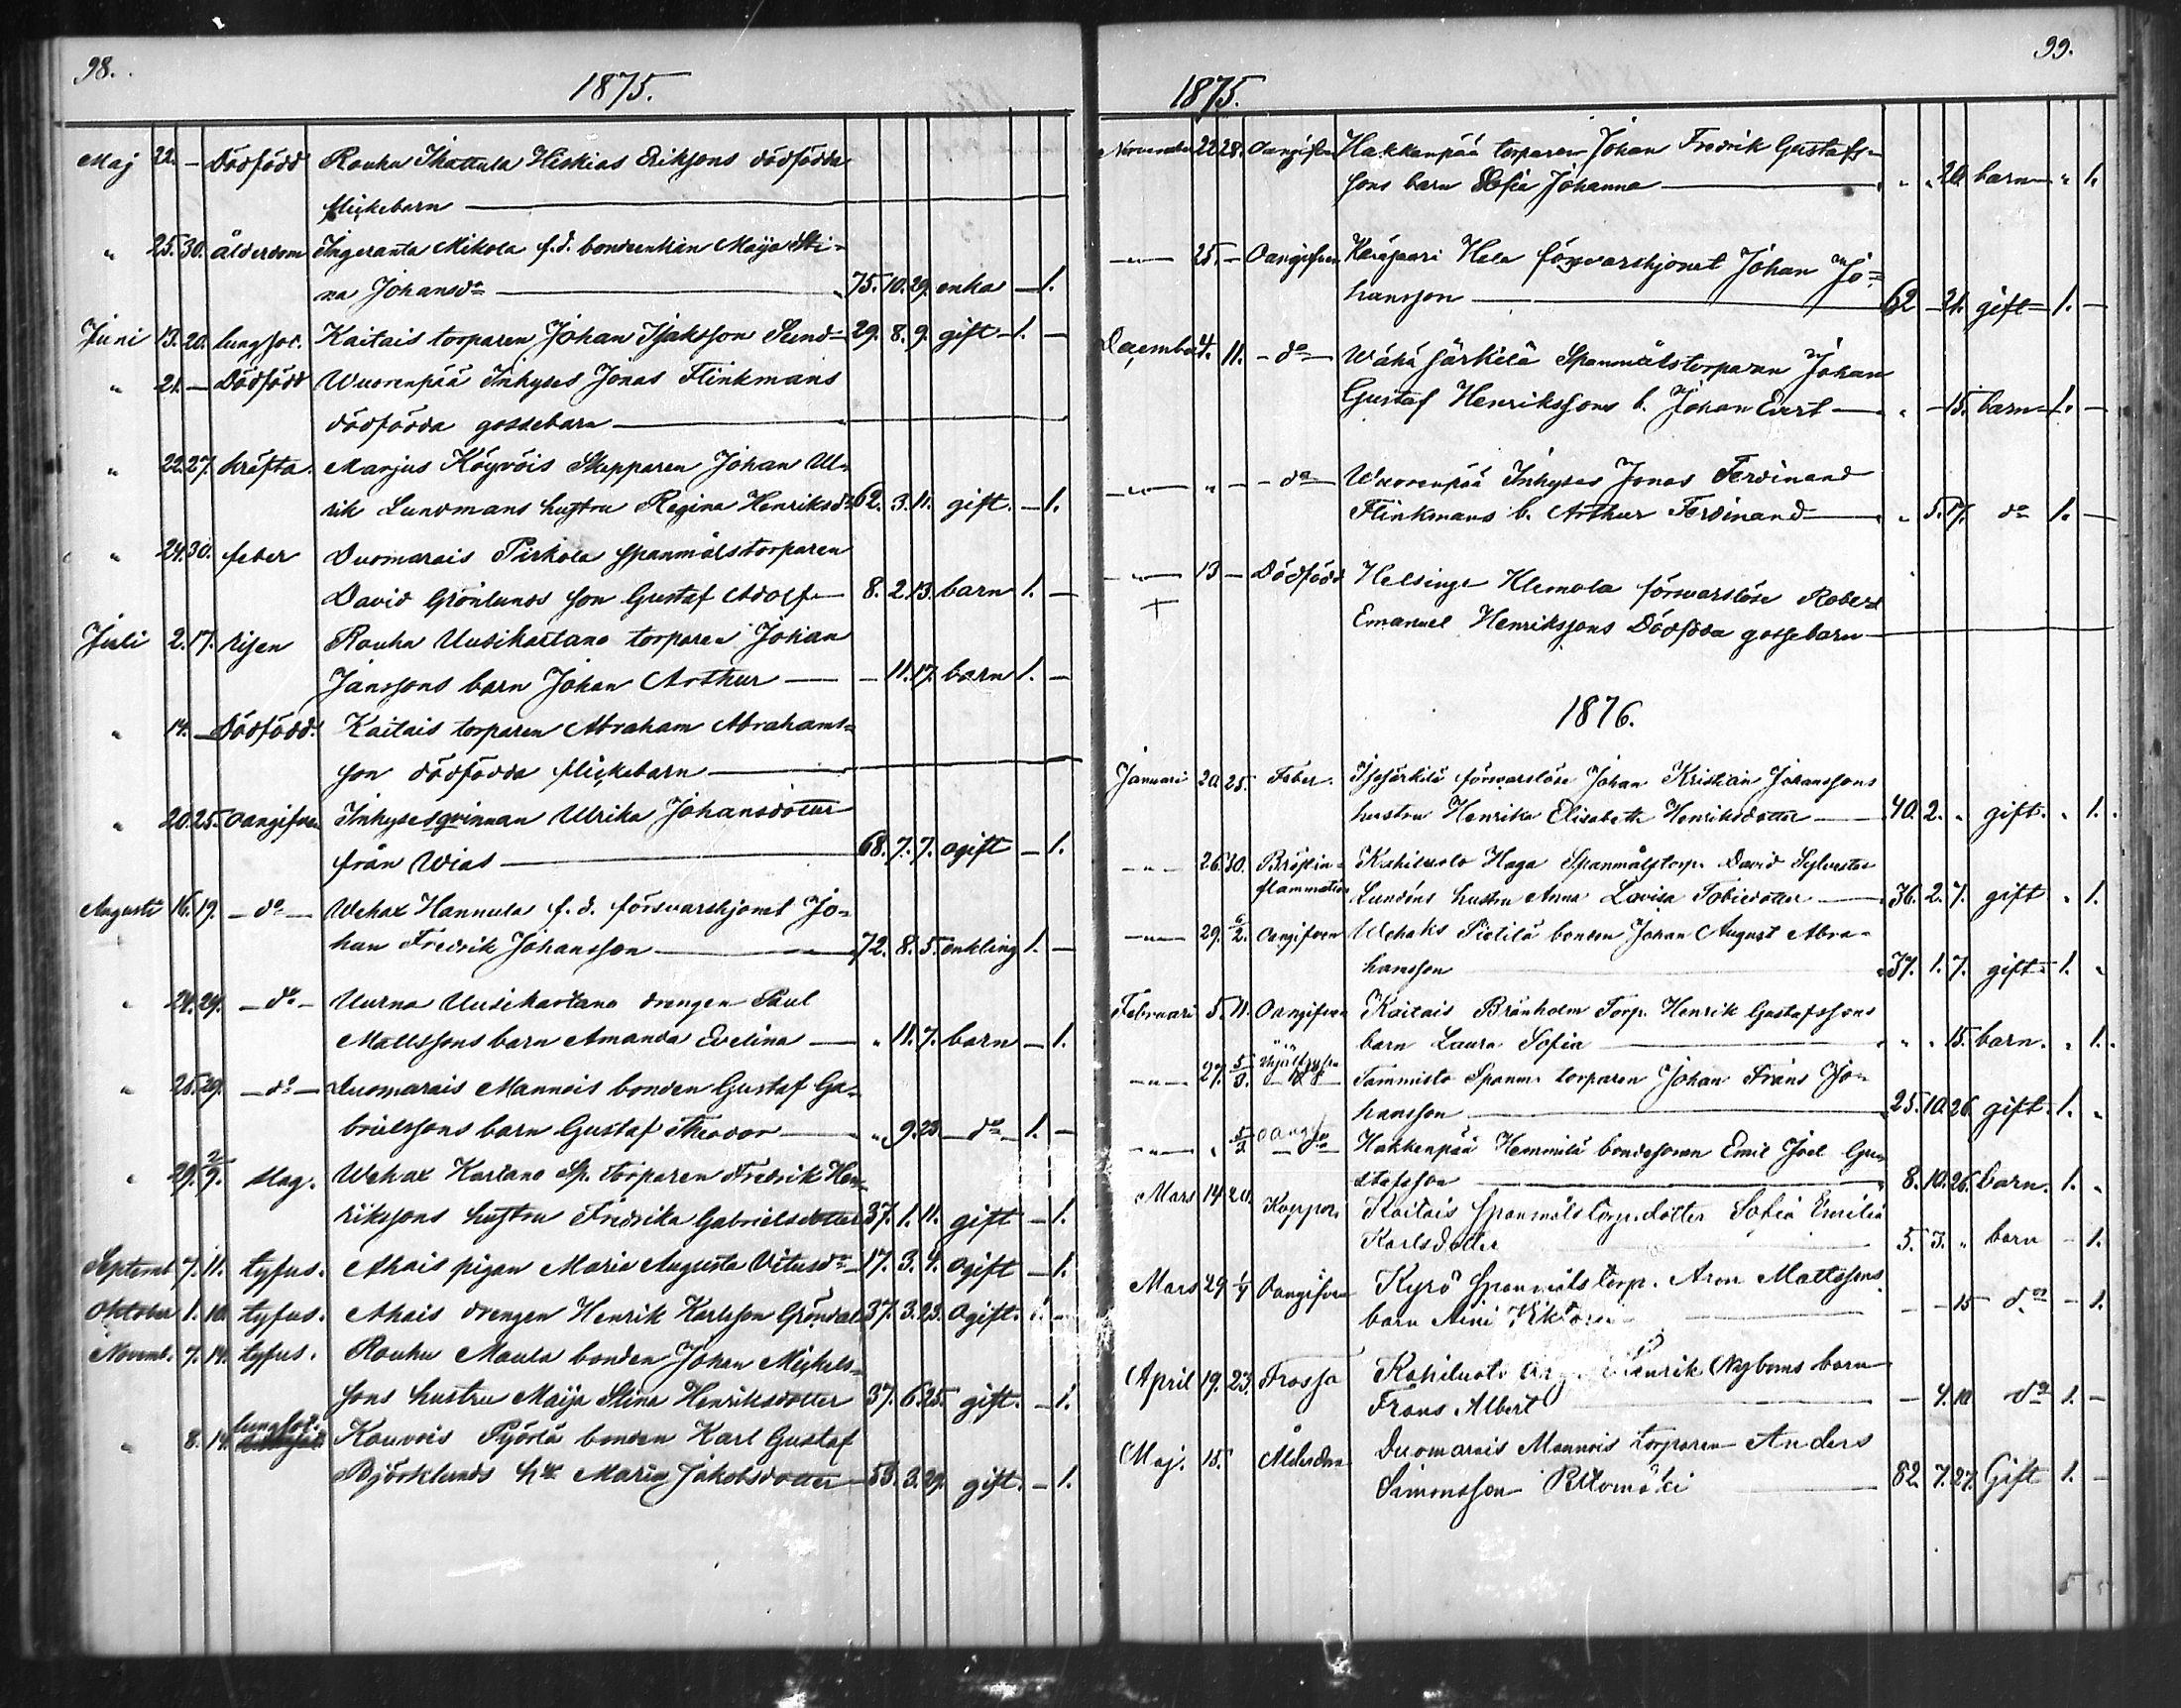 98.
1875.
Maj 22. — Dödfödd Rauhu Ihattula Hiskias Eriksons dödfödda
flickebarn
" 25. 30. ålderdom Ingeranta Mikola f.d. bondeenkan Maija Sti-
na Johansdr 75. 10. 29. enka — 1.
Juni 13. 20. lungsot. Kaitais torparen Johan Isaksson Sund 29. 8. 9. gift 1. —
" 21. — Dödfödd Wuorenpää Inhyses Jonas Flinkmans
dödfödda gossebarn
" 22. 27. kräfta. Marjus Köyvöis Skepparen Johan Ul-
rik Lundmans hustru Regina Henriksdr 62. 3. 11. gift. — 1.
" 24. 30. feber Duomarais Pirkola spanmålstorparen
David Grönlunds son Gustaf Adolf 8. 2. 13. barn 1. —
Juli 2. 17. risen Rauhu Uusikartano torparen Johan
Janssons barn Johan Arthur — 11. 17. barn 1. —
" 14. — Dödfödd. Kaitais torparen Abraham Abrahams-
son dödfödda flickebarn
" 20. 25. Oangifven Inhysesqvinnan Ulrika Johansdotter
från Wias 68. 7. 7. ogift — 1.
Augusti 16. 19. — do — Wehax Hannula f.d. försvarshjonet Jo-
han Fredrik Johansson 72. 8. 5. enkling 1. —
" 24. 29. — do — Uurna Uusikartano drengen Paul
Mattssons barn Amanda Evelina " 11. 7. barn — 1.
" 25. 29. — do — Duomarais Mannois bonden Gustaf Ga-
brielssons barn Gustaf Theodor " 9. 23 — do — 1. —
" 29. 2/9. slag. Wehax Kartano Sp. torparen Fredrik Hen-
rikssons hustru Fredrika Gabrielsdotter 37. 1. 11. gift — 1.
Septemb. 7. 11. tyfus. Ahais pigan Maria Augusta Vitusdr 17. 3. 4. ogift — 1.
Oktober 1. 10. tyfus. Ahais drengen Henrik Karlsson Gröndal 37. 3. 23. Ogift. 1. —
Novemb. 7. 14. tyfus. Rauhu Maula bonden Johan Mickels-
sons hustru Maija Stina Henriksdotter 37. 6. 25. gift. — 1.
" 8. 14. lungsot. Kauvois Pyörlä bonden Karl Gustaf
Björklunds hu Maria Jakobsdotter 53. 3. 29. gift. — 1.
99.
1875.
November 22 28. Oangifven Hakkenpää torparen Johan Fredrik Gustafs-
sons barn Sofia Johanna " " 20. barn — " 1.
— " — 25. — Oangifven Karjaari Hela försvarshjonet Johan Jo-
hansson 62 — 21. gift 1. —
December 4. 11. — do — Wähä Järkilä Spanmålstorparen Johan
Gustaf Henrikssons b. Johan Evert " — 15. barn 1. —
— " — " — — do — Wuorenpää Inhyses Jonas Ferdinand
Flinkmans b. Arthur Ferdinand " " 5. 17. do 1. —
— " — 13 — Dödfödd Helsinge Klemola försvarslöse Robert
Emanuel Henrikssons Dödfödda gossebarn
1876.
Januari 20. 25. Feber. Isojärkilä försvarslöse Johan Kristian Johanssons
hustru Henrika Elisabeth Henriksdotter 40. 2. " gift. " 1.
— " — 26. 30. Bröstin- Kahiluoto Haga Spanmålstorp. David Sylvester
flammation Lundéns hustru Anna Lovisa Tobiedotter 36. 2. 7. gift " 1.
— " — 29. 6/2. Oangifven Wehaks Pietilä bonden Johan August Abra-
hansson 37. 1. 7. gift 1. "
Februari 5. 11. Oangifven Kaitais Bränholm Torp. Henrik Gustafssons
barn Laura Sofia " " 15. barn. " 1.
— " — 27. 5/3. Tammisto Spanm. torparen Johan Frans Jo-
hansson 25. 10. 26. gift. 1. "
— " — " 5/3. Oangf do Hakkenpää Hemmilä bondesonen Emil Joel Gu-
stafsson 8. 10. 26. barn. 1. "
Mars 14 20. Koppor. Kaitais Spanmåls torp. dotter Sofia Emilia
Karlsdotter 5. 3. " barn — 1.
Mars 29 1/4 Oangifven Kyrö Spanmåls torp. Aron Mattssons
barn Aini Viktoria — — 15 do — 1.
April 19. 23. Frossa Kahiluoto Henrik Nyboms barn
Frans Albert — 4. 10 do 1. —
Maj. 15. Ålderdom Duomarais Mannois torparen Anders
Simonsson Peltomäki 82. 7. 27. Gift 1. —
5 5